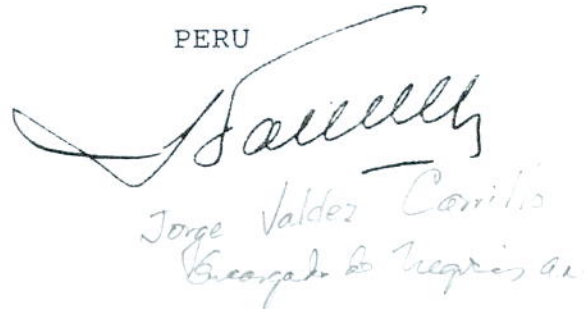 PERU
Jorge Valdez Carrillo
Encargado de Negocios a.